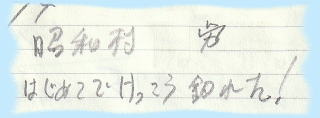 昭和村
はじめてでけっこう釣れた!